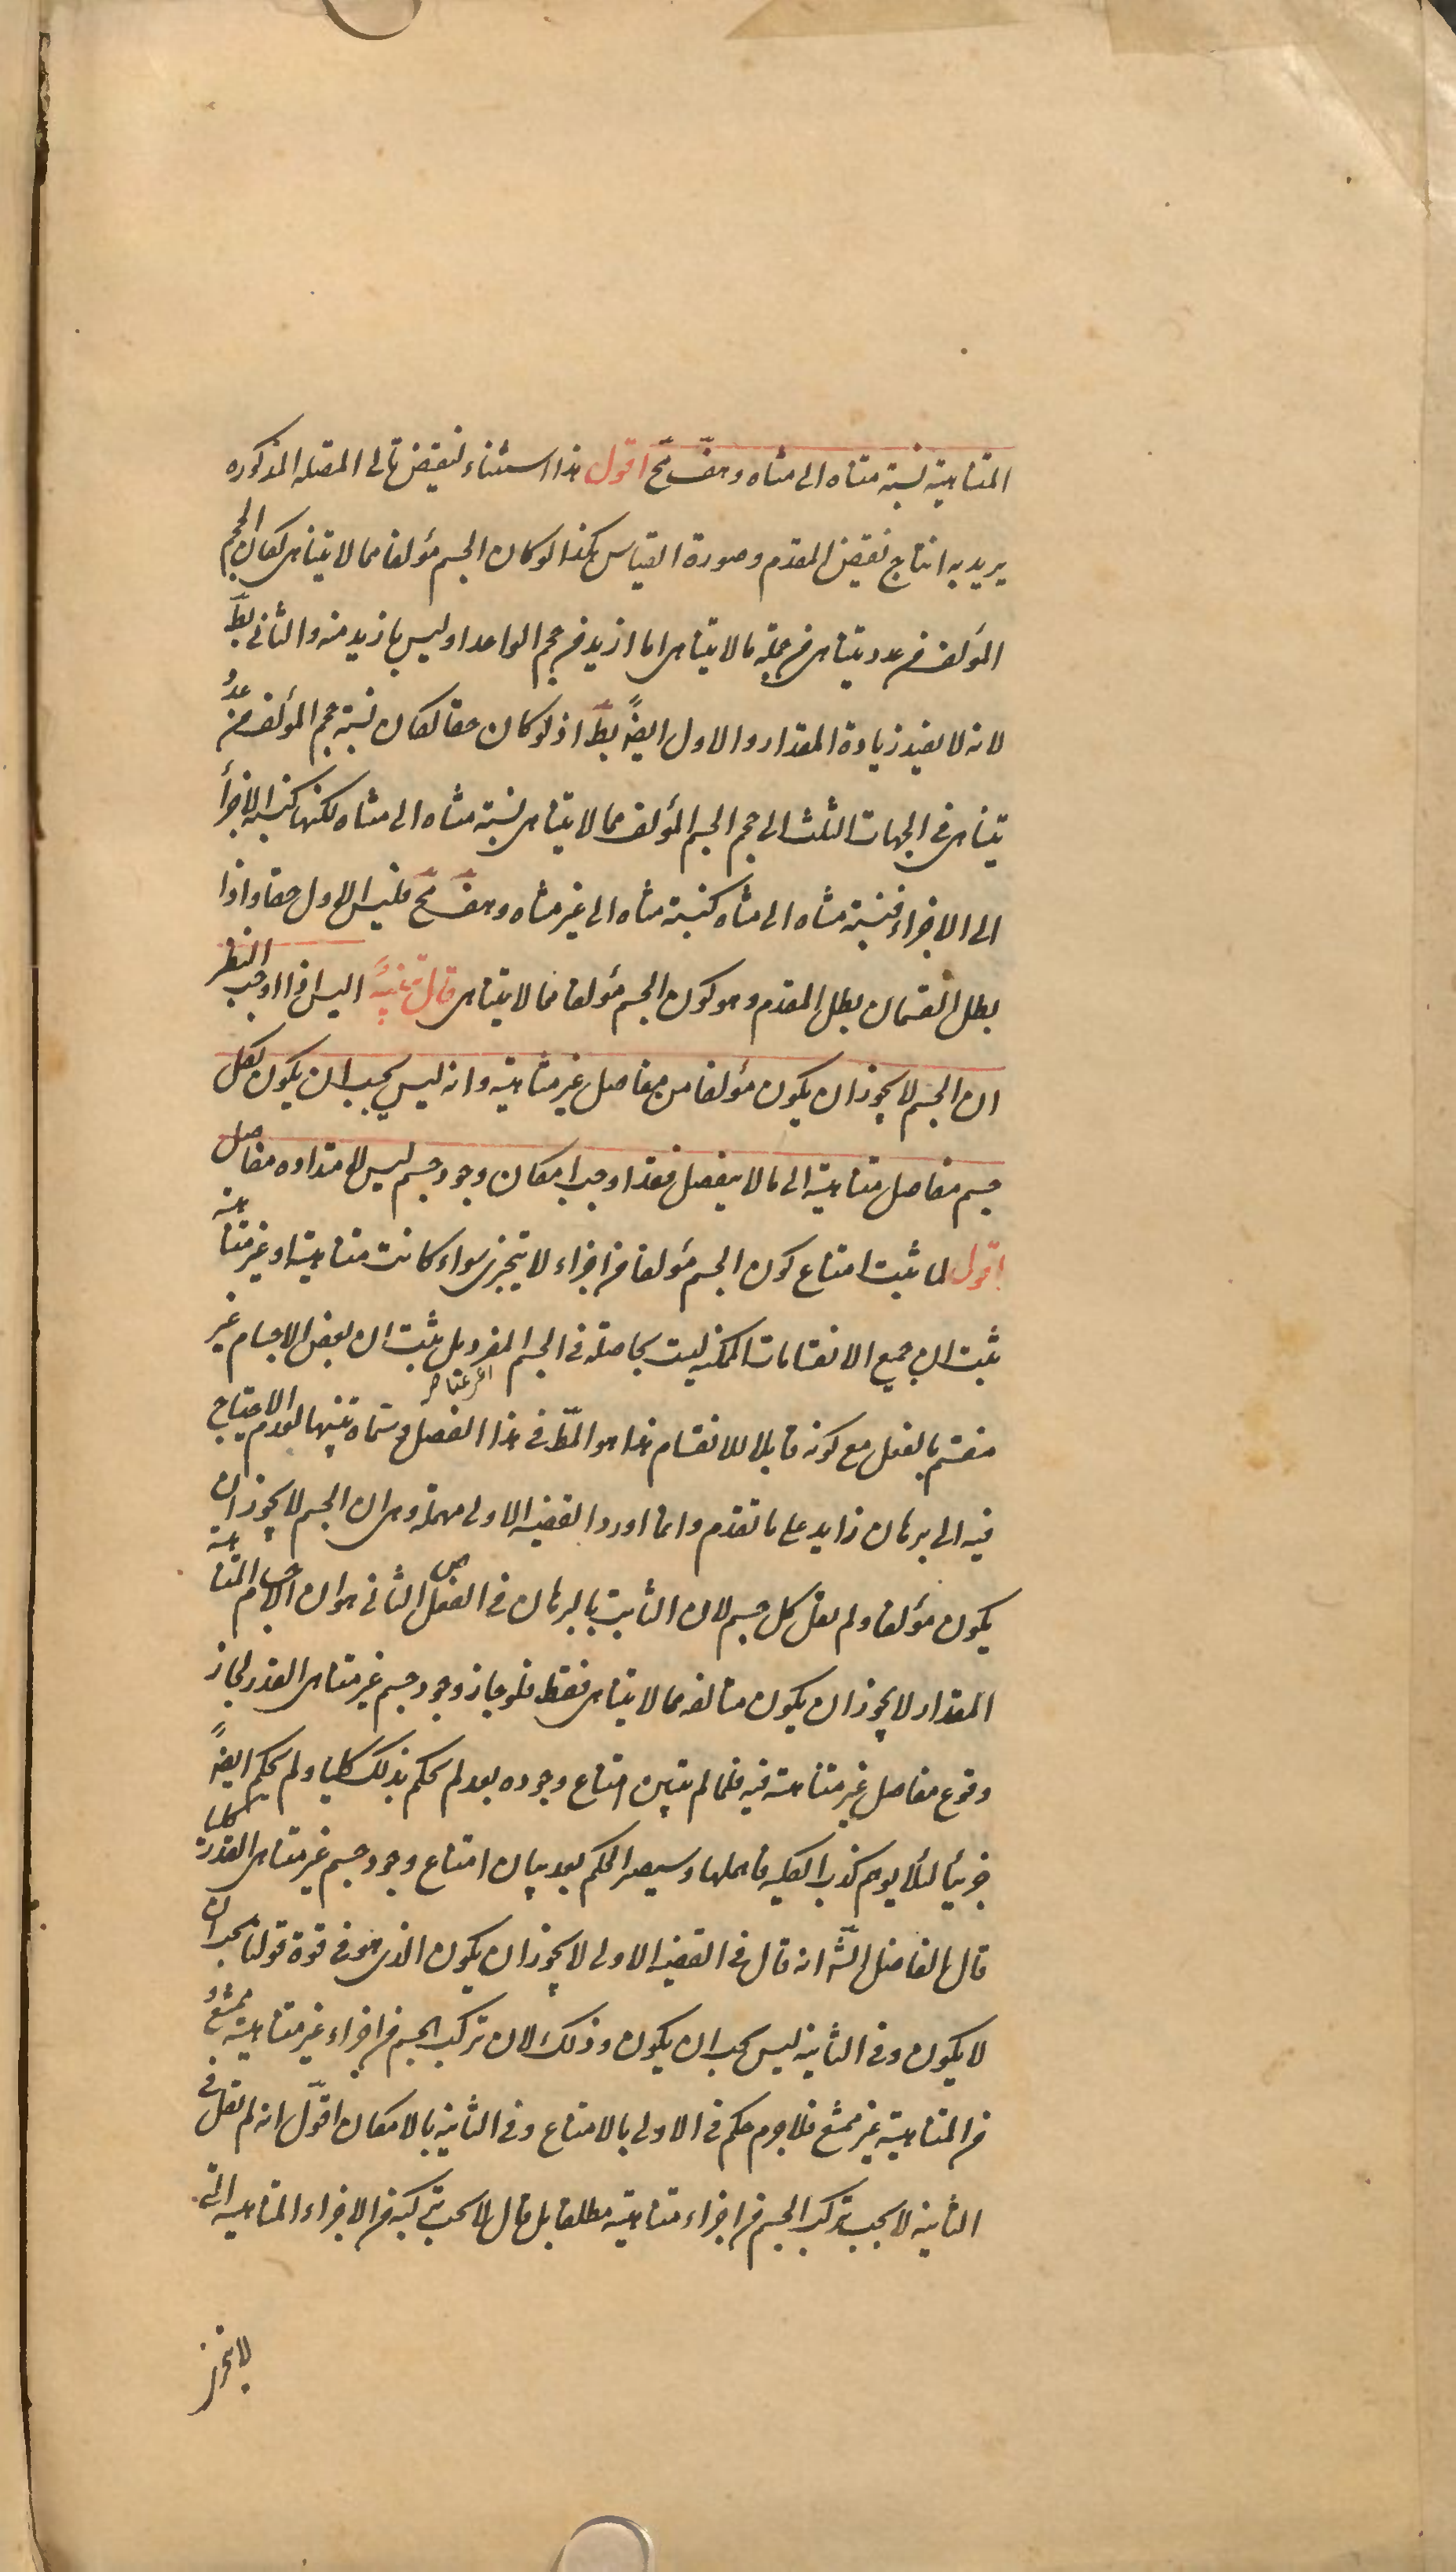 المتناهية نسبة متناه الى متناه وهف مح اقول هذا استثناء لنقيض تالى المتصله المذكوره
يريد به انتاج نقيض المقدم وصورة القياس هكذا لو كان الجسم مؤلفا مما لا يتناهى لكان الحجم
المؤلف من عدد يتناهى من جملة ما لا يتناهى اما ازيد من حجم الواحد او ليس بازيد منه والثانى بط
لانه لا يفيد زيادة المقدار والاول ايضً بط اذ لو كان حقا لكان نسبة حجم المؤلف من عدد
يتناهى فى الجهات الثلث الى حجم الجسم المؤلف مما لا يتناهى نسبة متناه الى متناه لكنها كنسبة الاجزأ
الى الاجزاء فنسبة متناه الى متناه كنسبة متناه الى غير متناه وهف مح فليس الاول حقا واذا
بطل القسمان بطل المقدم وهو كون الجسم مؤلفا مما لا يتناهى قال تنبيه اليس اذا اوجب النظر
ان الجسم لا يجوز ان يكون مؤلفا من مفاصل غير متناهية وانه ليس يجب ان يكون لكل
جسم مفاصل متناهية الى ما لا ينفصل فقد اوجب امكان وجود جسم ليس لامتداده مفاصل
اقول لما ثبت امتناع كون الجسم مؤلفا من اجزاء لا يتجزى سواء كانت متناهية او غير متناهية
ثبت ان جميع الانقسامات الممكنه ليست بحاصلة فى الجسم المفرد بل ثبت ان بعض الاجسام غير
منقسم بالفعل مع كونه قابلا للانقسام هذا هو المط فى هذا الفصل وسماه تنبيها لعدم الاحتياج
فيه الى برهان زايد على ما تقدم وانما اورد القضيه الاولى مهملة وهى ان الجسم لا يجوز ان
يكون مؤلفا ولم يقل كل جسم لان الثابت بالبرهان فى الفصل الثانى هو ان الاجسام المتناهية
المقدار لا يجوز ان يكون متالفه مما لا يتناهى فقط فلو جاز وجود جسم غير متناهى القدر لجاز
وقوع مفاصل غير متناهية فيه فلما لم يتبين امتناع وجوده بعد لم يحكم بذلك كليا ولم يحكم ايضً
جزئيا لئلا يوهم كذب الكليه فاهملها وسيصير الحكم بعد بيان امتناع وجود جسم غير متناهى القدر كليا
قال الفاضل الشّ انه قال فى القضية الاولى لا يجوز ان يكون الذى هو فى قوة قولنا يجب ان
لا يكون وفى الثانية ليس يجب ان يكون وذلك لان تركب الجسم من اجزاء غير متناهية ممتنع و
من المتناهية غير ممتنع فلا جرم حكم فى الاولى بالامتناع وفى الثانية بالامكان اقول انه لم يقل فى
الثانية لا يجب تركب الجسم من اجزاء متناهية مطلقا بل قال لا يجب تركبه من الاجزاء المتناهية التى
لا يتجزى